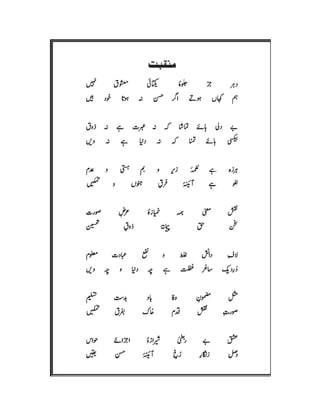 منقبت
دہر جز جلوۂ یکتائی معشوق نہیں
ہم کہاں ہوتے اگر حسن نہ ہوتا خود بیں
بے دلی ہائے تماشا کہ نہ عبرت ہے نہ ذوق
بیکسی ہائے تمنا کہ نہ دنیا ہے نہ دیں
ہرزہ ہے نغمۂ زیر و بم ہستی و عدم
لغو ہے آئنۂ فرق جنون و تمکیں
نقش معنی ہمہ خمیازۂ عرض صورت
سخن حق ہمہ پیمانۂ ذوق تحسیں
لاف دانش غلط و نفع عبادت معلوم
درد یک ساغر غفلت ہے چہ دنیا و چہ دیں
مثل مضمون وفا باد بدست تسلیم
صورت نقش قدم خاک بفرق تمکیں
عشق بے ربطی شیرازۂ اجزائے حواس
وصل زنگار رخ آئنۂ حسن یقیں